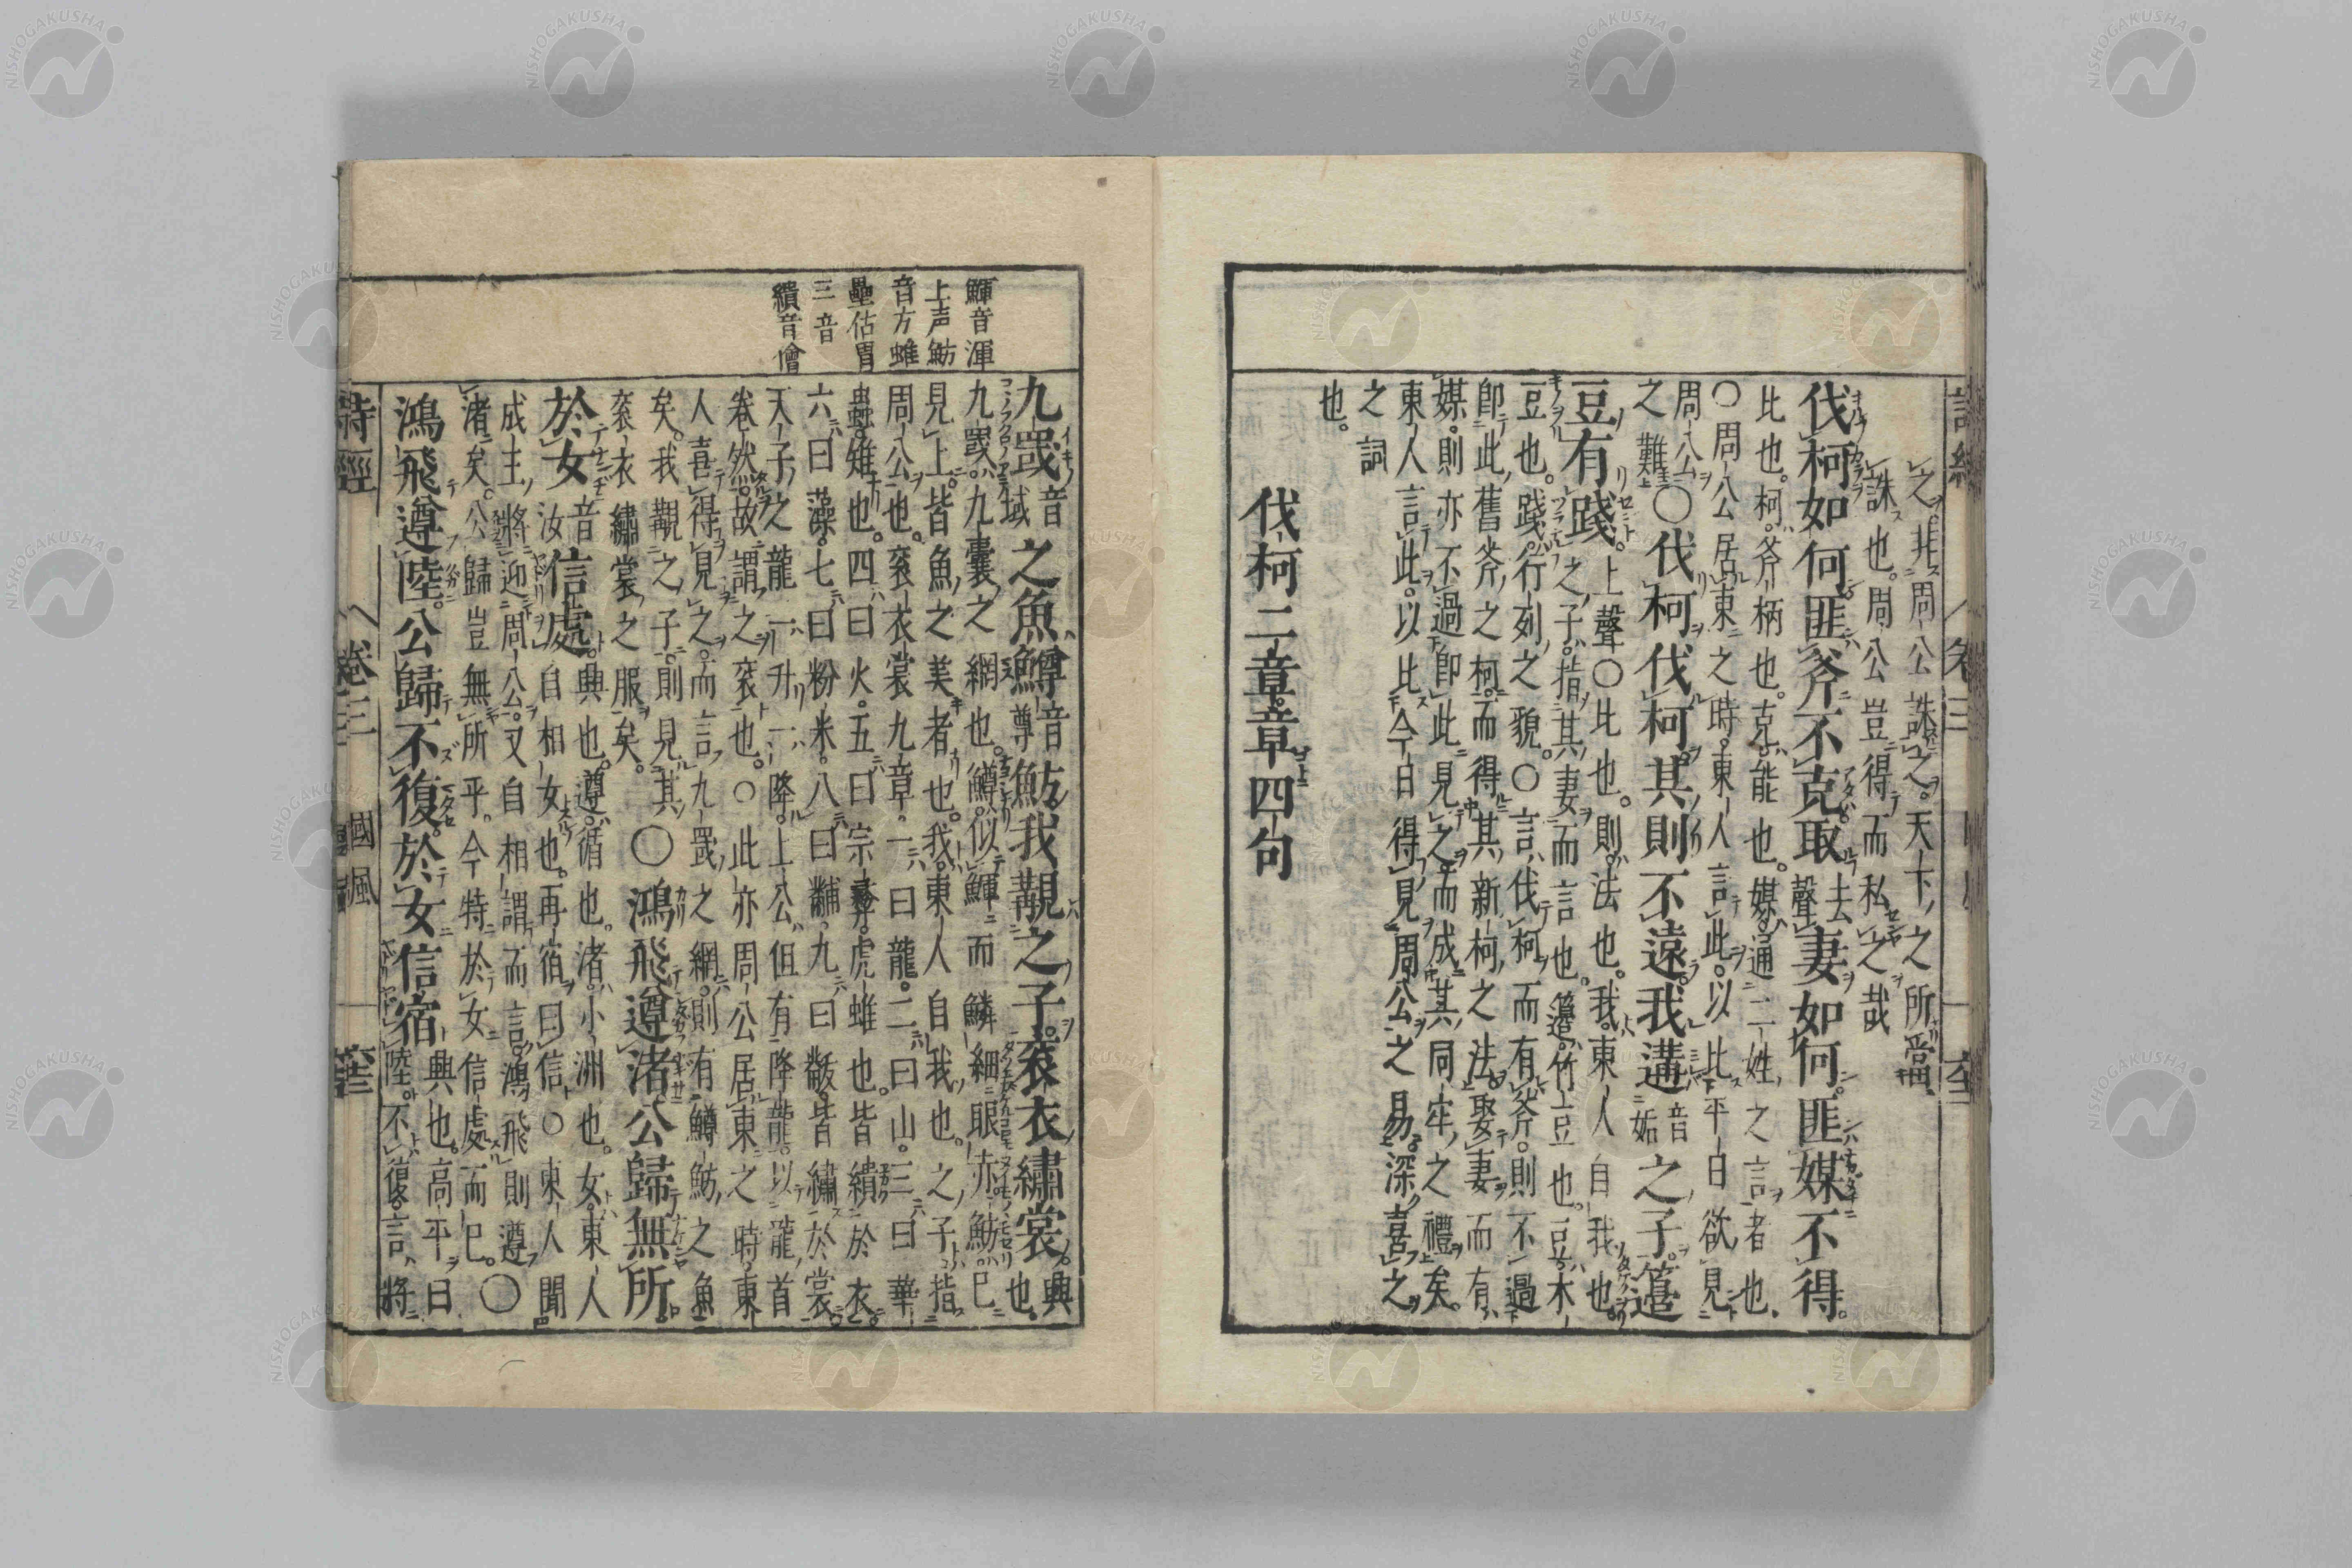 之非周公誅之。天下之所當
誅也。周公豈得而私之哉
伐柯如何匪斧不克取去聲妻如何。匪媒不得。
比也。柯。斧柄也。克。能也。媒。通二姓之言者也
○周公居東之時。東人言此。以比平日欲見
周公
之難○伐柯伐柯其則不遠我遘音姤之子籩
豆有踐上聲○比也。則。法也。我。東人自我也。
之子。指其妻而言也。籩。竹豆也。豆。木
豆也。踐。行列之貌。○言伐柯而有斧。則不過
即此舊斧之柯。而得其新柯之法。娶妻而有
媒。則亦不過即此見之。而成其同牢之禮矣。
東人言此。以比今日得見周公之易。深喜之
之詞
也。
伐柯二章章四句
鯶音渾
上声魴
音方蜼
壘佑胃
三音
繢音僧
九罭音域之魚鱒音尊魴我覯之子。袞衣繡裳。興也。
九罭。九囊之網也。鱒。似鯶而鱗細眼赤。魴。已
見上。皆魚之美者也。我。東人自我也。之子。指
周公也。袞衣裳九章。一曰龍。二曰山。三曰華
蟲。雉也。四曰火。五曰宗彝。虎蜼也。皆繢於衣。
六曰藻。七曰粉米。八曰黼。九曰黻。皆繡於裳。
天子之龍一升一降。上公但有降龍。以龍首
卷然。故謂之袞也。○此亦周公居東之時。東
人喜得見之。而言九罭之網。則有鱒魴之魚
矣。我覯之子。則見其
袞衣繡裳之服矣。
○鴻飛遵渚公歸無所。
於女音汝信處。興也。遵。循也。渚。小洲也。女。東人
自相女也。再宿曰信○東人聞
成王將迎周公。又自相謂而言。鴻飛則遵
渚矣。公歸豈無所乎。今特於女信處而已。○
鴻飛遵陸。公歸不復。於女信宿興也。高平曰
陸。不復。言將
詩經 卷三 國風